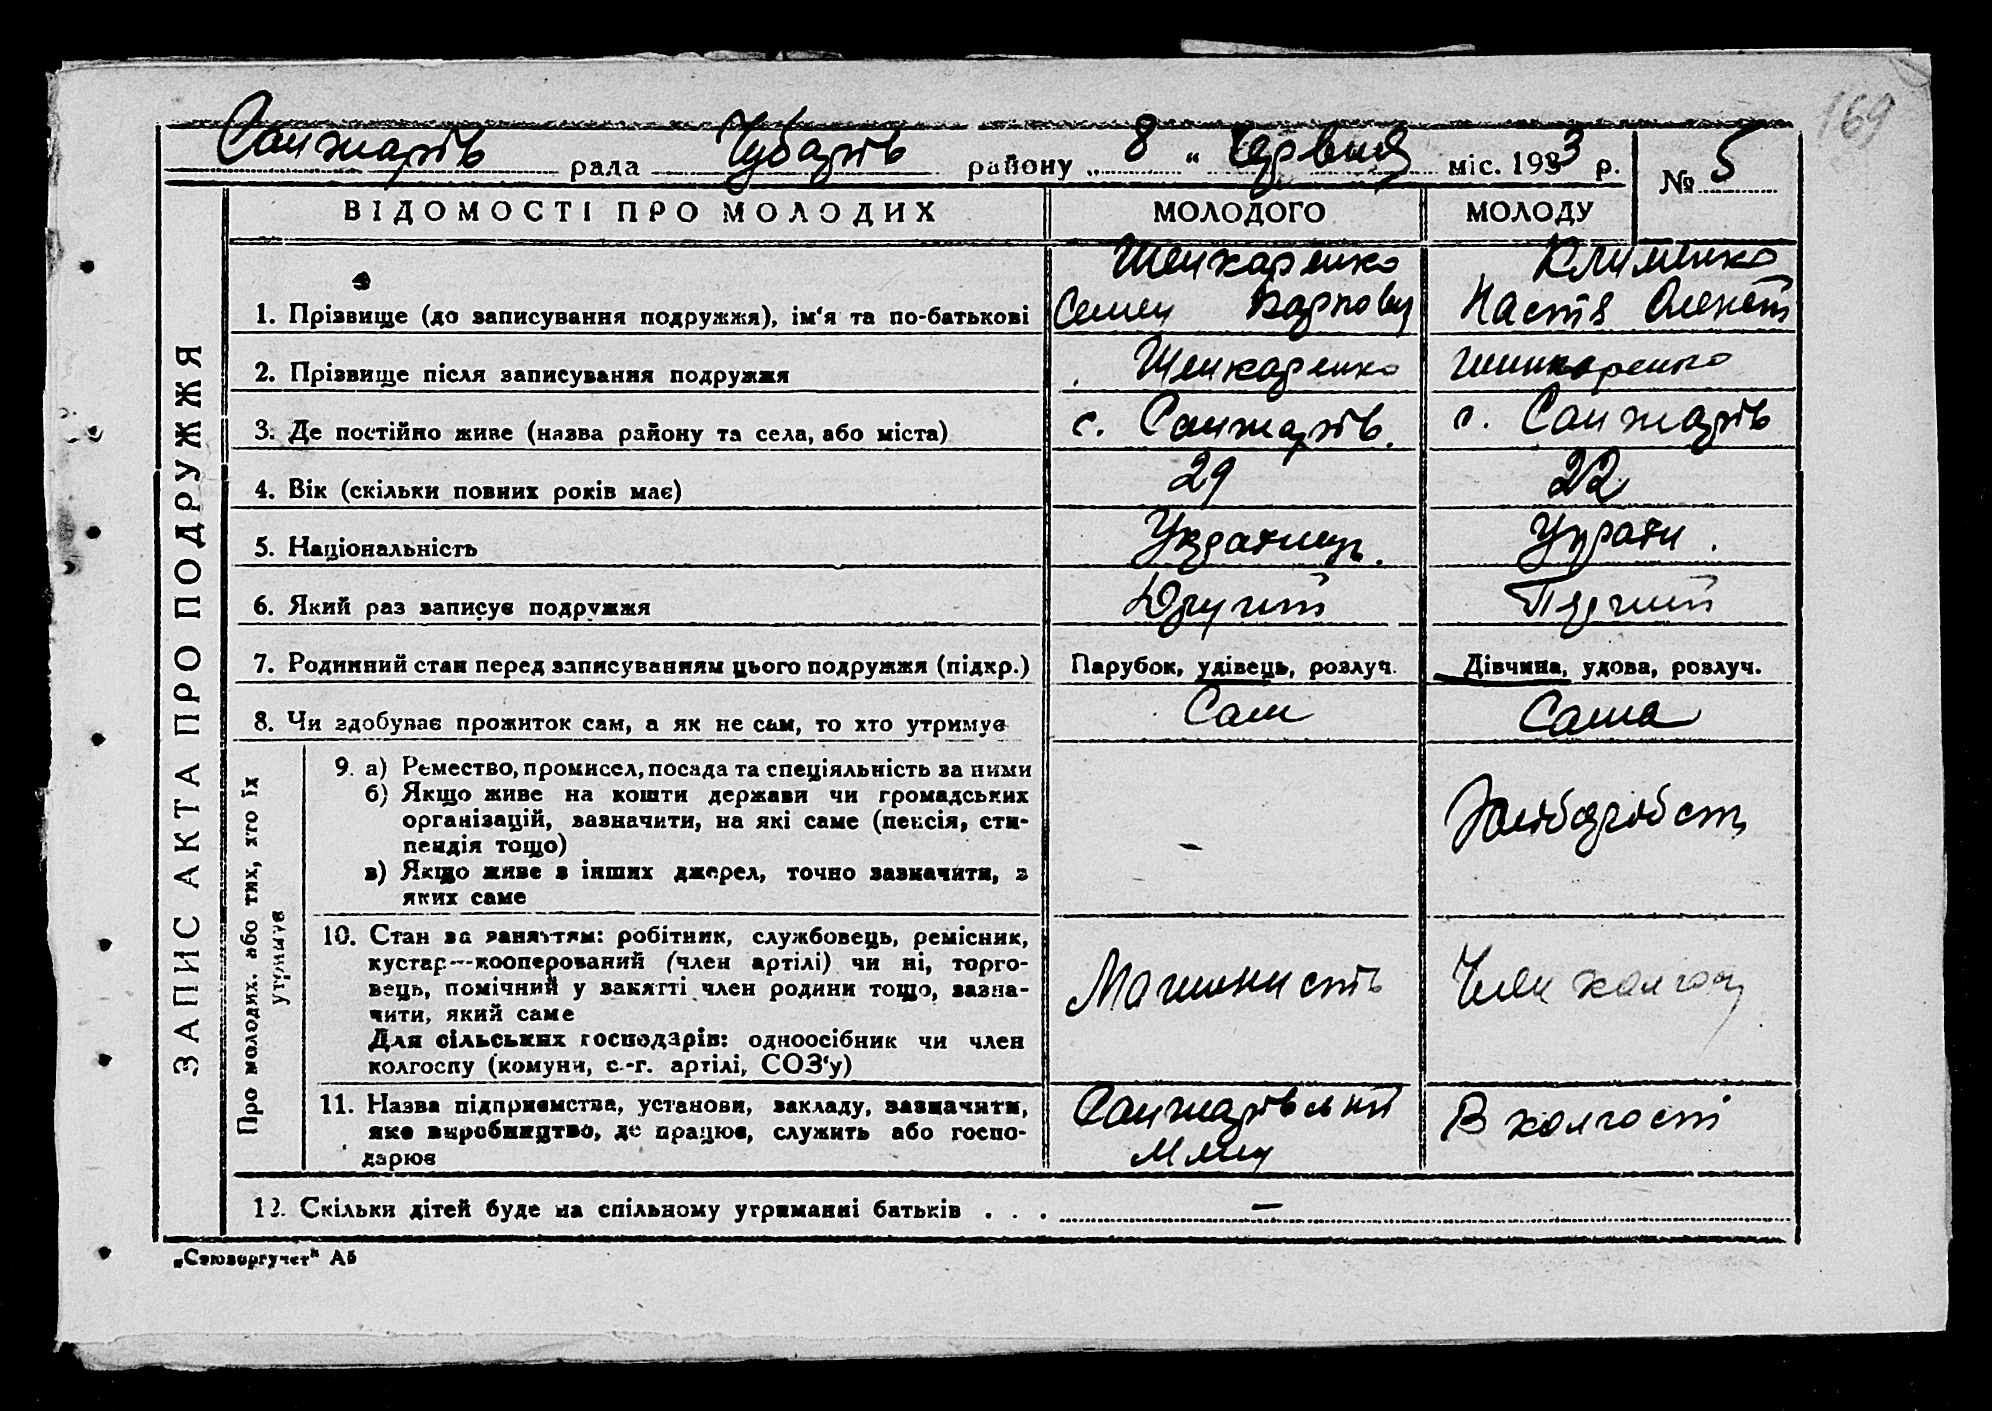 169
Санжарів рада Чубарів району „ 8 “ Червня міс. 1933 р. № 5
ЗАПИС АКТА ПРО ПОДРУЖЖЯ
ВІДОМОСТІ ПРО МОЛОДИХ МОЛОДОГО МОЛОДУ
Шинкаренко Клименко
1. Прізвище (до записування подружжя), ім‘я та по-батькові Семен Карпович Настя
2. Прізвище після записування подружжя Шинкаренко Шинкаренко
3. Де постійно живе (назва району та села, або міста) с. Санжарів. с. Санжарів
4. Вік (скільки повних років має) 29 22
5. Національність Українець. Україн.
6. Який раз записує подружжя Другий Перший
7. Родинний стан перед записуванням цього подружжя (підкр.) Парубок, удівець, розлуч. Дівчина, удова, розлуч.
8. Чи здобуває прожиток сам, а як не сам, то хто утримує Сам Сама
Про молодих, або тих, хто їх
утримує
9. а) Ремество, промисел, посада та спеціяльність за ними
б) Якщо живе на кошти держави чи громадських
організацій, зазначити, на які саме (пенсія, сти-
пендія тощо) - Хліборобст
в) Якщо живе з інших джерел, точно зазначити, з
яких саме
10. Стан за заняттям: робітник, службовець, ремісник,
кустар—кооперований (член артілі) чи ні, торго-
вець, помічний у занятті член родини тощо, зазна-
чити, який саме Машинисть Член колгосп
Для сільських господарів: одноосібник чи член
колгоспу (комуни, с.-г. артілі, СОЗ‘у)
11. Назва підприємства, установи, закладу, зазначити, Санжарівський
яке виробництво, де працює, служить або госпо- В колгоспі
дарює Млин
12. Скільки дітей буде на спільному утриманні батьків . . . —
„Союзоргучет“ А5